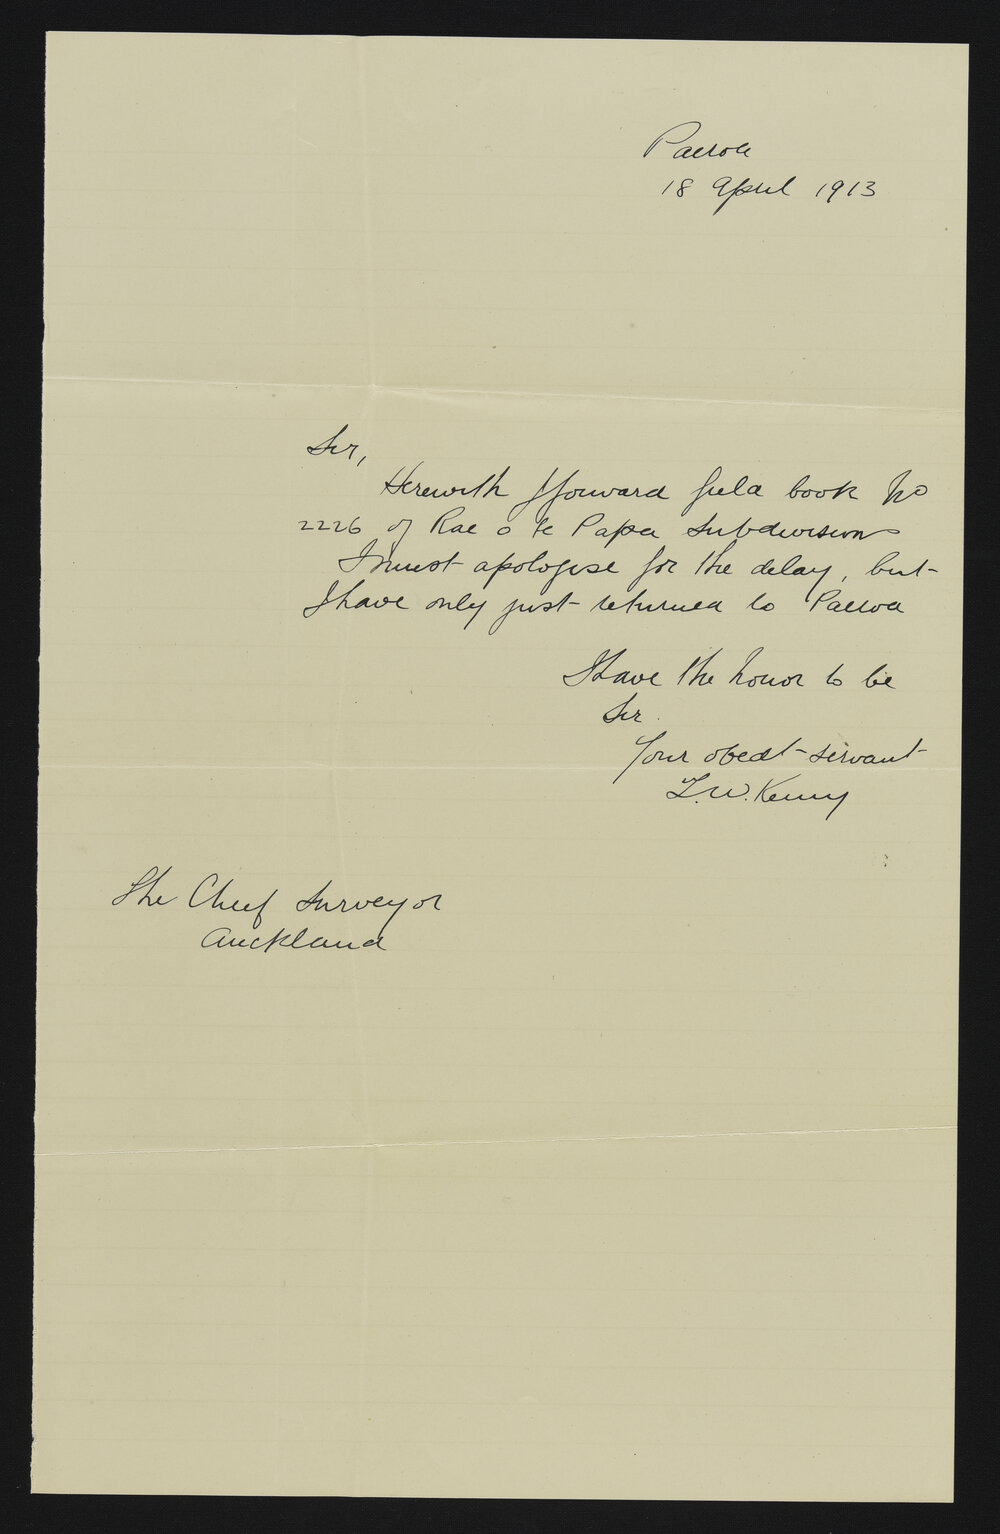 Paeroa
18 April 1913
Sir,
Herewith I forward field book No
2226 of Rae o te Papa Subdivisions
I must apologise for the delay, but
I have only just returned to Paeroa
I have the honor to be
Sir
Your obedt servant
L.W. Kenny
The Chief Surveyor
Auckland